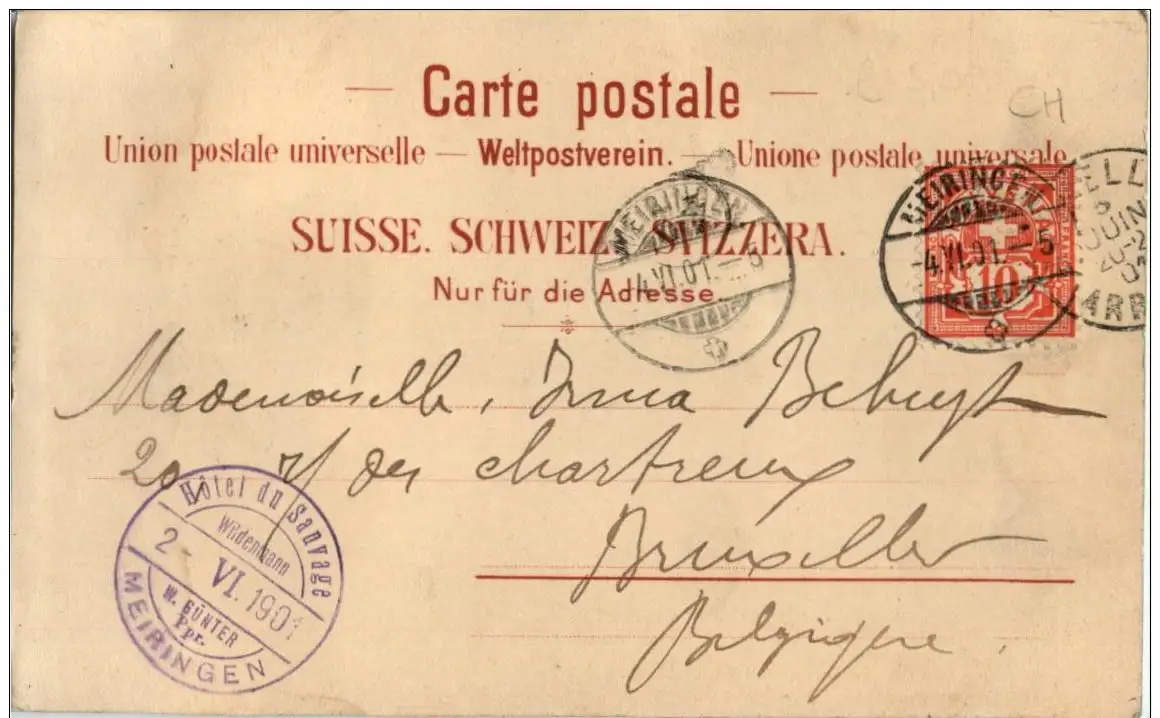 CH
— Carte postale —
Union postale universelle — Weltpostverein. — Unione postale universale
SUISSE. SCHWEIZ. SVIZZERA.
Nur für die Adresse.
MEIRINGEN
-4.VI.01.-5
MEIRINGEN
-4.VI.01.-5
10
ELL
JUIN
20-2
01
ARR
Mademoiselle, Irma
20 des chartreux
Bruxelles
Belgique
Hôtel du Sauvage
Wildenmann
2 VI. 1901
W. GÜNTER
Ppr.
MEIRINGEN